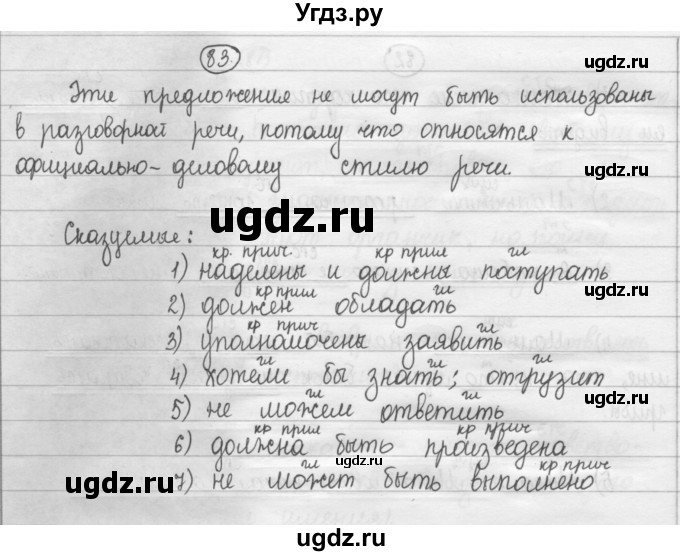 Угдз.ру
83.
Эти предложения не могут быть использованы
в разговорной речи, потому что относятся к
официально-деловому стилю речи.
ugdz.ru
ugdz.ru
ugdz.ru
ugdz.ru
Сказуемые:
кр. прич. кр прил гл
1) наделены и должны поступать
кр прил гл
2) должен обладать
кр прич гл
3) уполномочены заявить
гл гл гл
4) хотели бы знать; отгрузит
гл гл
5) не можем ответить
кр прил кр прич
6) должна быть произведена
гл кр прич
7) не может быть выполнено
ugdz.ru
ugdz.ru
ugdz.ru
ugdz.ru
ugdz.ru
ugdz.ru